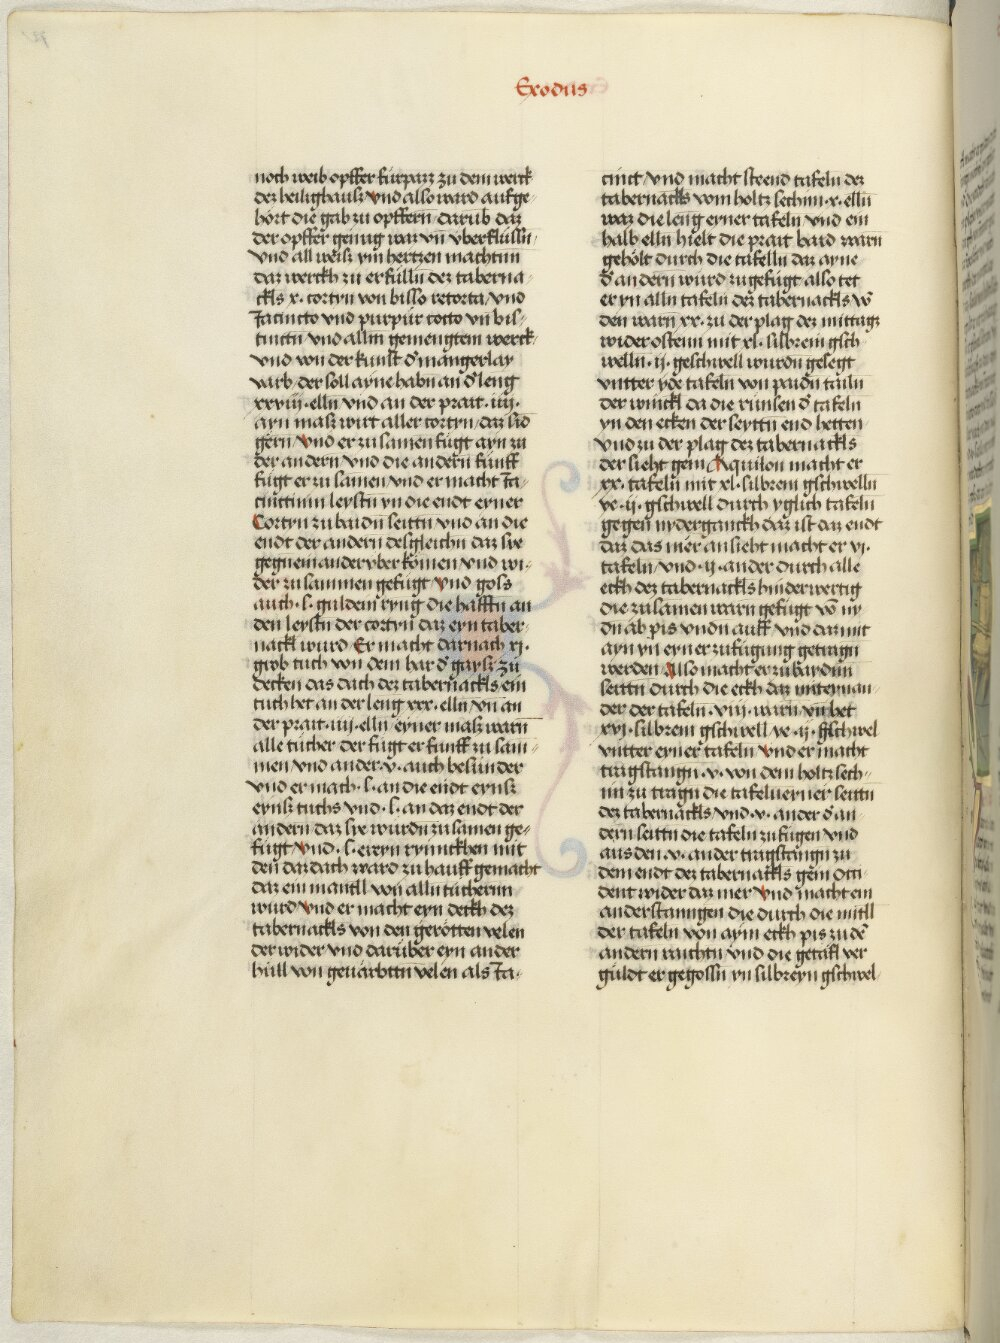 Exodus
noch weib opffer furpazz zu dem werck
dez heilighauss vnd also ward aufge-
hört die gab zu opffern darūb daz
der opffer genug waz vn̄ vberflussn̄
vnd all weisz ym hertzen machtnn
daz werckh zu erfulln̄ dez taberna-
ckls x. cortyn von bisso retorta/vnd
Jacincto vnd purpur cocto vn̄ bis-
tinctn̄ vnd alln̄ gemengtem werck
vnd von der kunst d̓ mangerlay
varb/der soll ayne habn̄ an d̓ leng
xxviij.elln̄ vnd an der prait.iiij.
ayn masz wirt aller cortyn/daz sid
gern vnd er zu samen fugt ayn zu
der andern vnd die andern funff
fugt er zu samen vnd er macht Ja-
cincttinn leystn̄ yn die endt eyner
Cortyn zu baidn̄ seittn̄ vnd an die
endt der andern desgleichn̄ daz sye
gegneinander vber kömen vnd wi-
der zu sammen gefugt/vnd goss
auch.l.guldein ryng die hafftn̄ an
den leystn̄ der cortyn̄ daz eyn taber-
nackl wurd Er macht darnach xi.
grob tuch von dem har d̓ gaysz zu
decken das dach dez tabernackls/ein
tuch het an der leng xxx.elln̄ vn̄ an
der prait.iiij.elln̄ eyner masz warn
alle tücher der fugt er funff zu sam-
men vnd ander.v.auch besunder
vnd er mach.l.an die endt eynsz
eynsz tuchs vnd.l.an daz endt der
andern daz sye wurdn̄ zu samen ge-
fugt vnd.l.ereyn rynnckhen mit
den̄ daz dach ward zu hauff gemacht
daz ein mantll von alln̄ tüchernn
wurd vnd er macht eyn deckh dez
tabernackls von den gerötten velen
der wider vnd darüber eyn ander
hüll von geuarbttn̄ velen als Ja-
cinct/vnd macht steend tafeln dez
tabernackls vom holtz sechim.x.elln̄
waz die leng eyner tafeln vnd ein
halb elln̄ hielt die prait baid warn
gehölt durch die tafelln̄ daz ayne
d̓ andern wurd zugefugt also tet
er yn alln̄ tafeln dez tabernackls vō
den warn xx.zu der plag dez mittags
wider ostenn mit xl.silbrein gsch-
welln̄.ij.geschwell wurdn̄ gelegt
vntter yde tafeln von paidn̄ tailn̄
der winckl da die runsen d̓ tafeln
yn den ecken der seyttn̄ end hetten
vnd zu der plag dez tabernackls
der sieht gein Aquilon macht er
xx.tafeln mit xl.silbrein gschwelln̄
ye.ij.gschwell durch yglich tafeln
gegen nyderganckh daz ist daz endt
daz das mer ansieht macht er vi.
tafeln/vnd.ij.ander durch alle
eckh dez tabernackls hinderwertig
die zu samen warn gefugt vō ny-
dn̄ ab pis vndn̄ auff vnd daz mit
ayn yn eyner zufugung getragn̄
werden Also macht er zu baydnn
seittn̄ durch die eckh daz miteynan-
der der tafeln.viij.warn vnd het
xvj.silbrein gschwell ye.ij.gschwel
vntter eyner tafeln vnd er macht
tragstangn̄.v.von dem holtz sech-
im zu tragn̄ die tafeln eyner seittn̄
dez tabernackls/vnd.v.ander d̓ an-
dern seittn̄ die tafeln zu fugen vnd
aus den.v.ander tragstangn̄ zu
dem endt dez tabernackls gein occi-
dent wider daz mer vnd macht ein
anderstanngen die durch die mitll
der tafeln von aym eckh pis zu dē
andern raichtn̄ vnd die getäfl ver
guldt er gegossn̄ yn silbreyn gschwel-